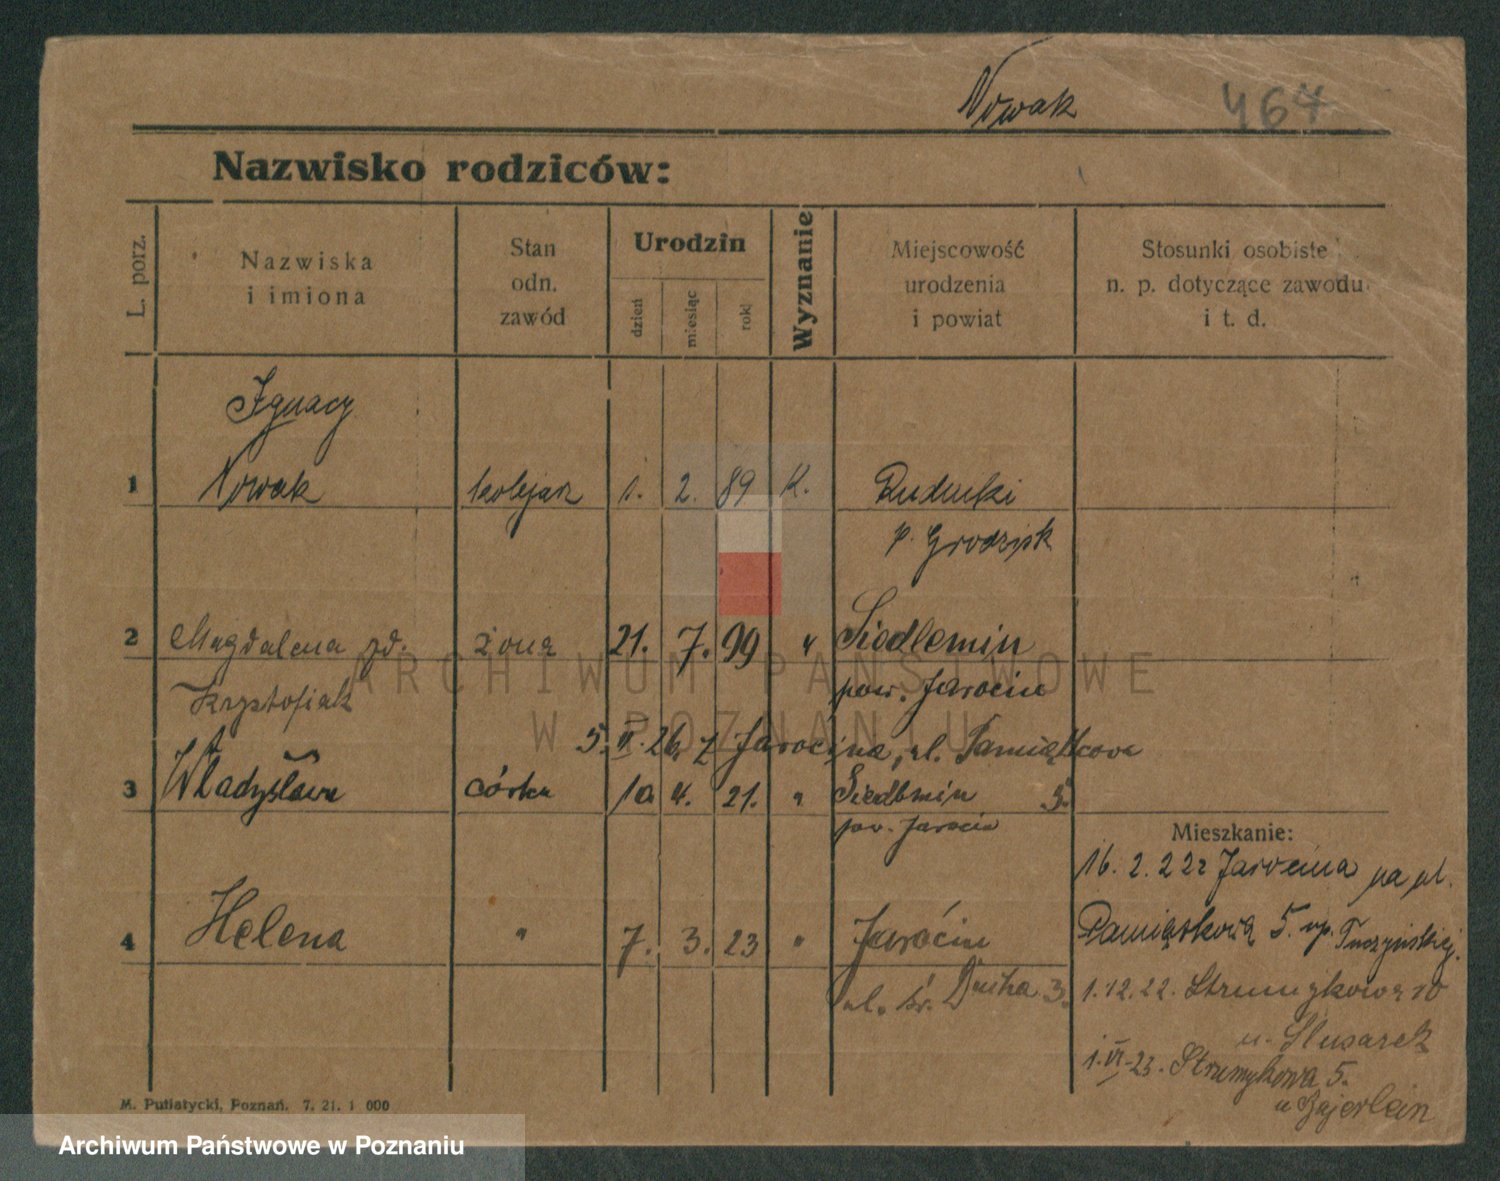 Nowak 467
Nazwisko rodziców:
L. porz.
Nazwiska
i imiona
Stan
odn.
zawód
Urodzin
dzień
miesiąc
rok
Wyznanie
Miejscowość
urodzenia
i powiat
Stosunki osobiste
n. p. dotyczące zawodu
i t. d.
Ignacy
1 Nowak kolejarz 1. 2. 89 K.
p. Grodzisk
2 Magdalena zd. żona 21. 7. 99 " Siedlemin
Krysztofiak pow. Jarocin
5. VI. 26. z Jarocina, ul. Pamiątkowa
3 Władysława córka 10 4. 21. " Siedlemin 5.
pow. Jarocin
Mieszkanie:
16. 2. 22 z Jarocina na ul.
4 Helena " 7. 3. 23 " Jarocin
Pamiątkową 5. np. Tuczyńskiej.
ul. św. Ducha 3.
1.12.22. Strumykowa 10
u. Slusarek
1. VI. 23. Strumykowa 5.
u
M. Putiatycki, Poznań. 7. 21. 1 000
ARCHIWUM PAŃSTWOWE
W POZNANIU
Archiwum Państwowe w Poznaniu